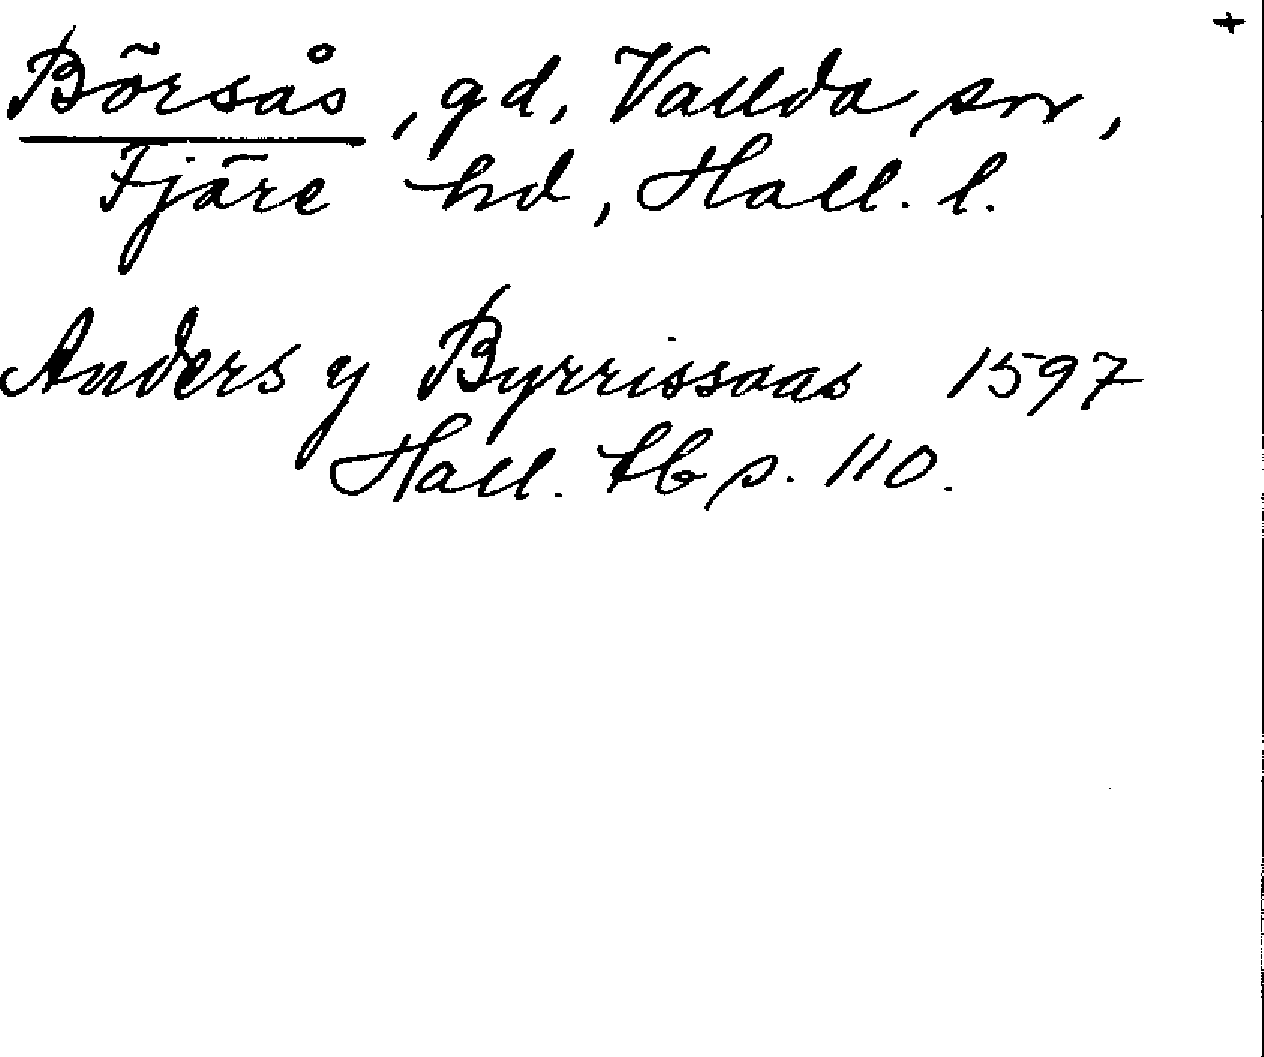 +
Börsås, gd, Vallda sn,
Fjäre hd, Hall. l.
Anders y Byrrissaas 1597
Hall. tb s. 110.